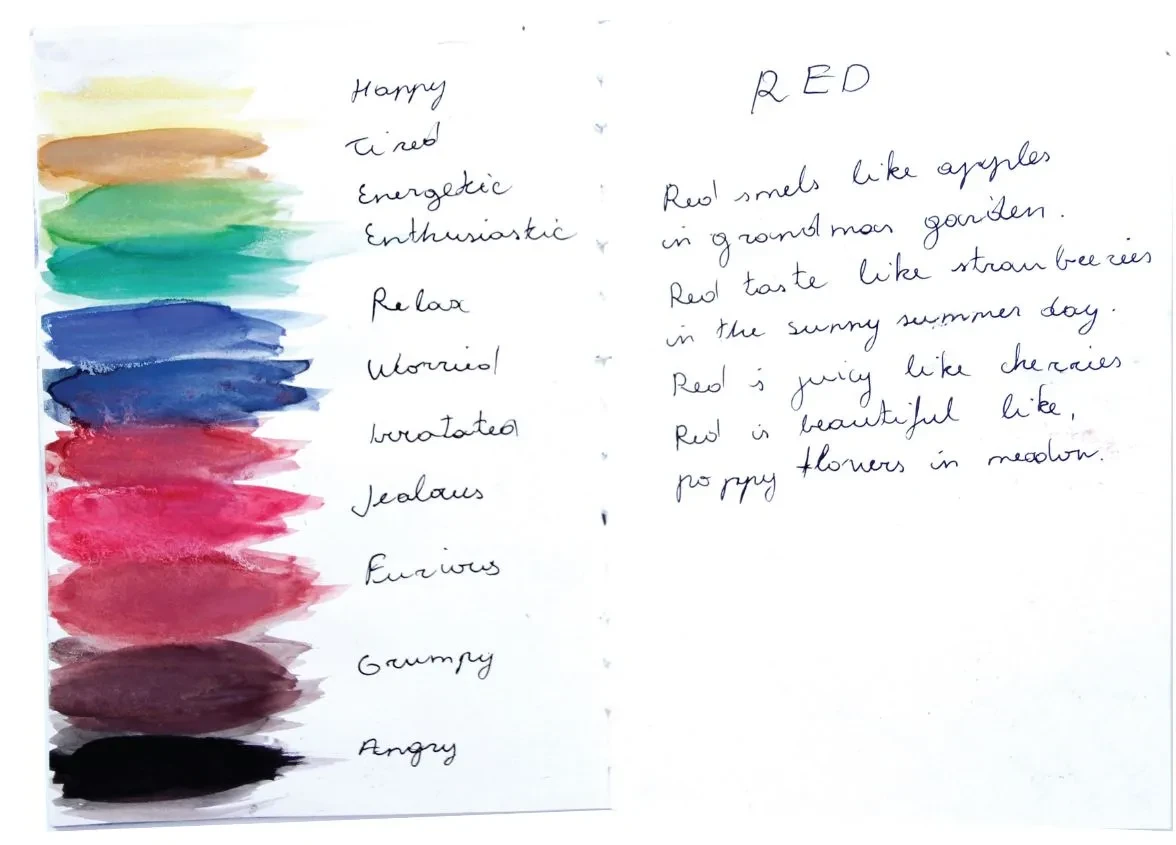 Happy
Tired
Energetic
Enthusiastic
Relax
Worried
Irratated
Jealous
Furious
Grumpy
Angry
RED
Red smels like apples
in grandmas garden.
Red taste like strawbeeries
in the sunny summer day.
Red is juicy like cherries
Red is beautiful like,
poppy flowers in meadow.